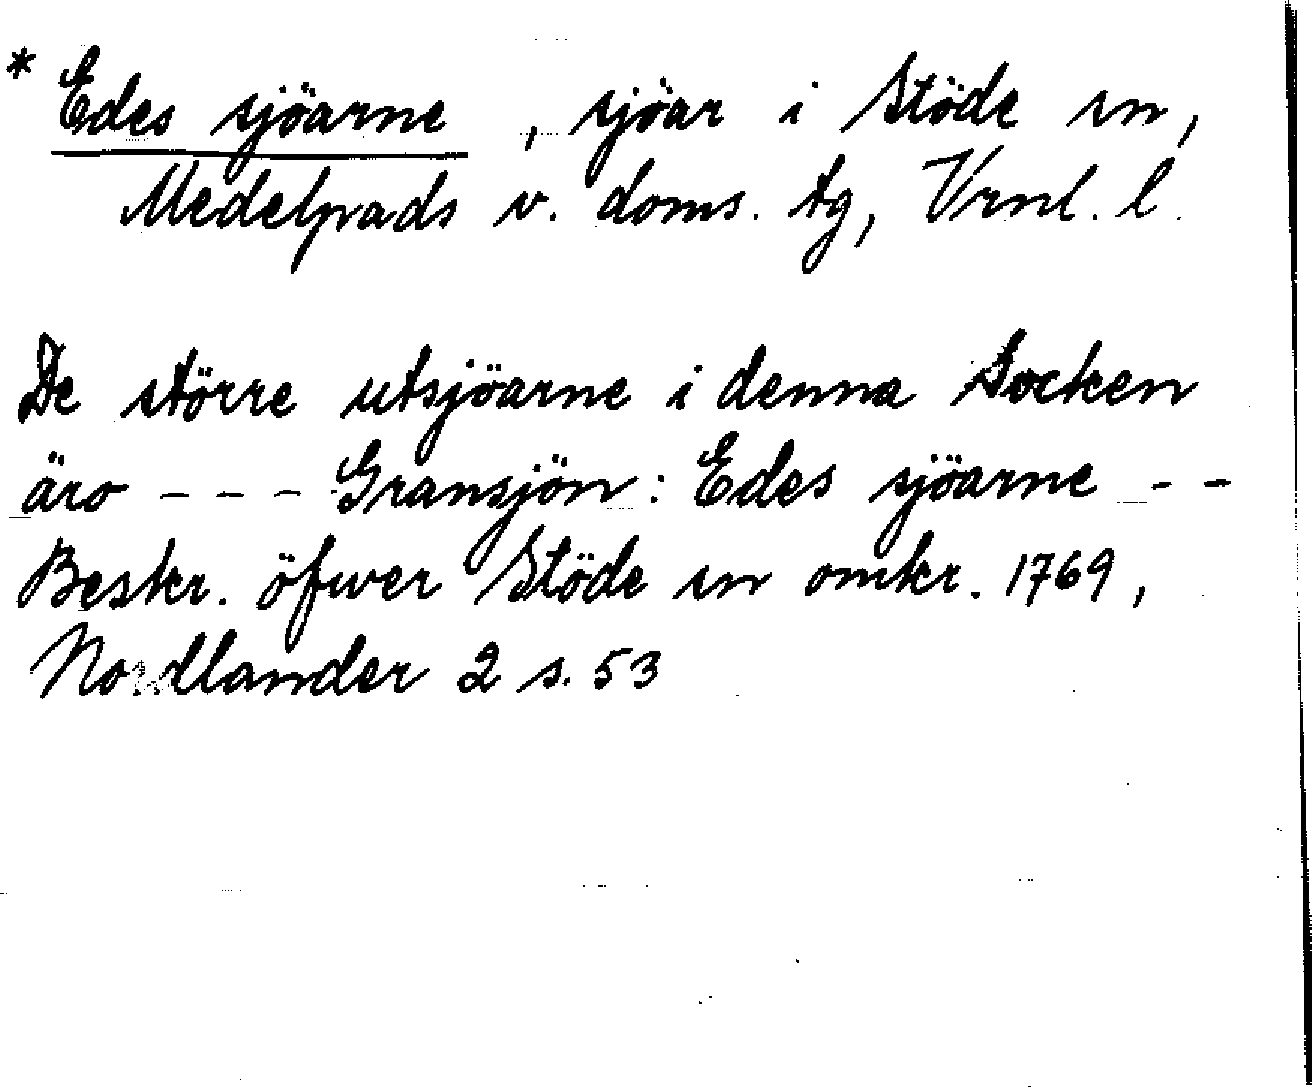 * Edes sjöarne , sjöar i Stöde sn,
Medelpads v. doms. tg, Vrnl. l.
De större utsjöarne i denna Socken
äro - - - Gransjön: Edes sjöarne - -
Beskr. öfwer Stöde sn omkr. 1769,
Nordlander 2 s. 53